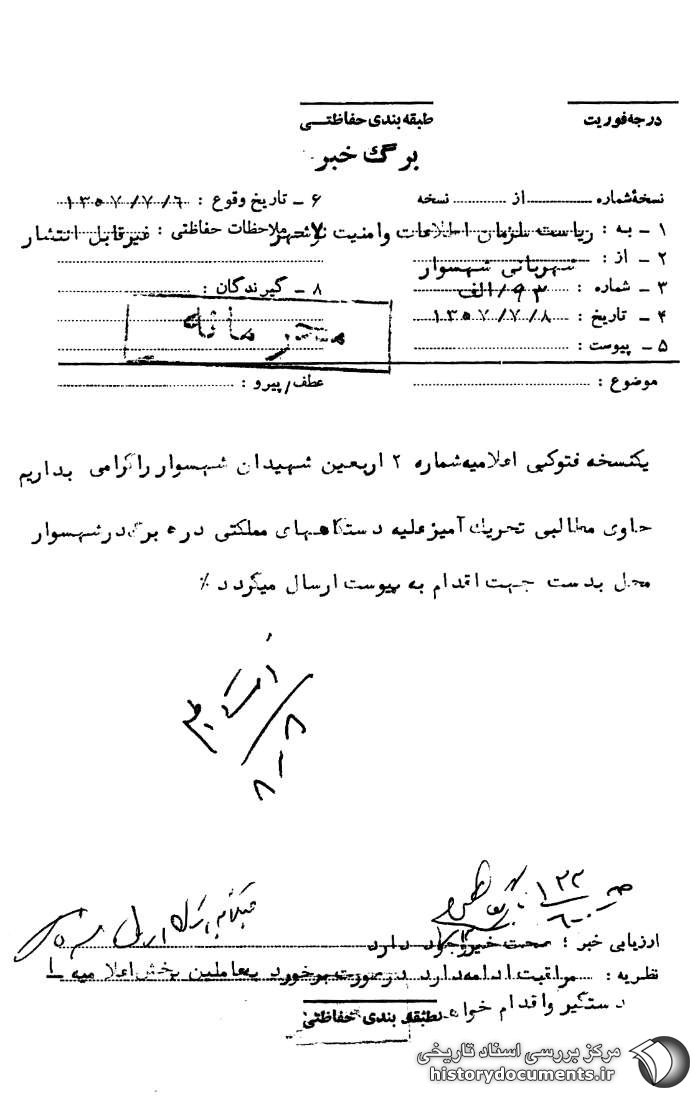 درجه فوریت
طبقه بندی حفاظتـــی
برگ خبر
نسخهٔ شماره ........ از ........ نسخه
۱ ـ به : ریاست سازمان اطلاعات وامنیت نوشهر
۲ ـ از : شهربانی شهسوار
۳ ـ شماره : ۹۲/الف
۴ ـ تاریخ : ۱۳۵۷/۷/۸
۵ ـ پیوست :
۶ ـ تاریخ وقوع : ۱۳۵۷/۷/۶
۷ ـ ملاحظات حفاظتی : غیرقابل انتشار
۸ ـ گیرندگان :
موضوع :
عطف/پیرو :
یکنسخه فتوکپی اعلامیه شماره ۲ اربعین شهیدان شهسوار راگرامی بداریم
حاوی مطالبی تحریك آمیزعلیه دستگاههای مملکتی در ۵ برگ درشهسوار
محل بدست جهت اقدام به پیوست ارسال میگردد ٪
۸/۸
۱۲۲
ارزیابی خبر : صحت خبروجود دارد
نظریه : مراقبت ادامه دارد درصورت برخورد بعاملین پخش اعلامیه ها
دستگیر واقدام خواهد
طبقه بندی حفاظتی
مرکز بررسی اسناد تاریخی
historydocuments.ir